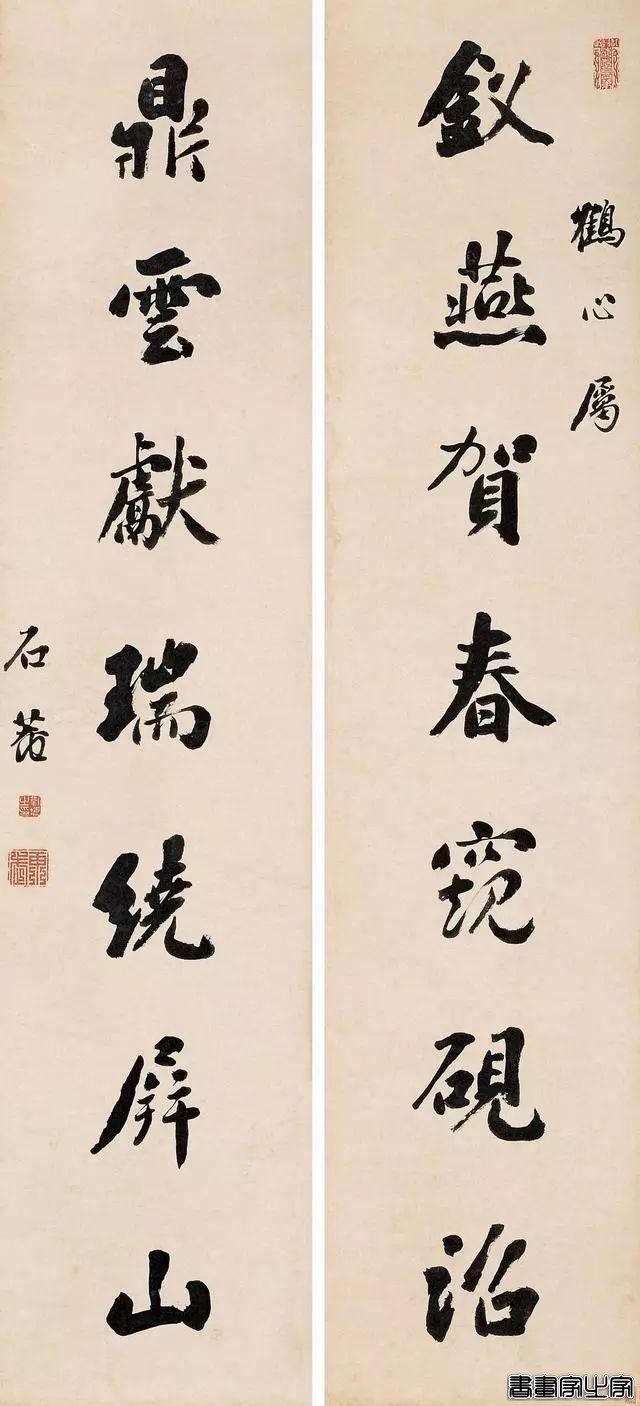 鶴心屬
釵燕賀春窺硯沼
鼎雲獻瑞繞屏山
石菴
書畫家之家